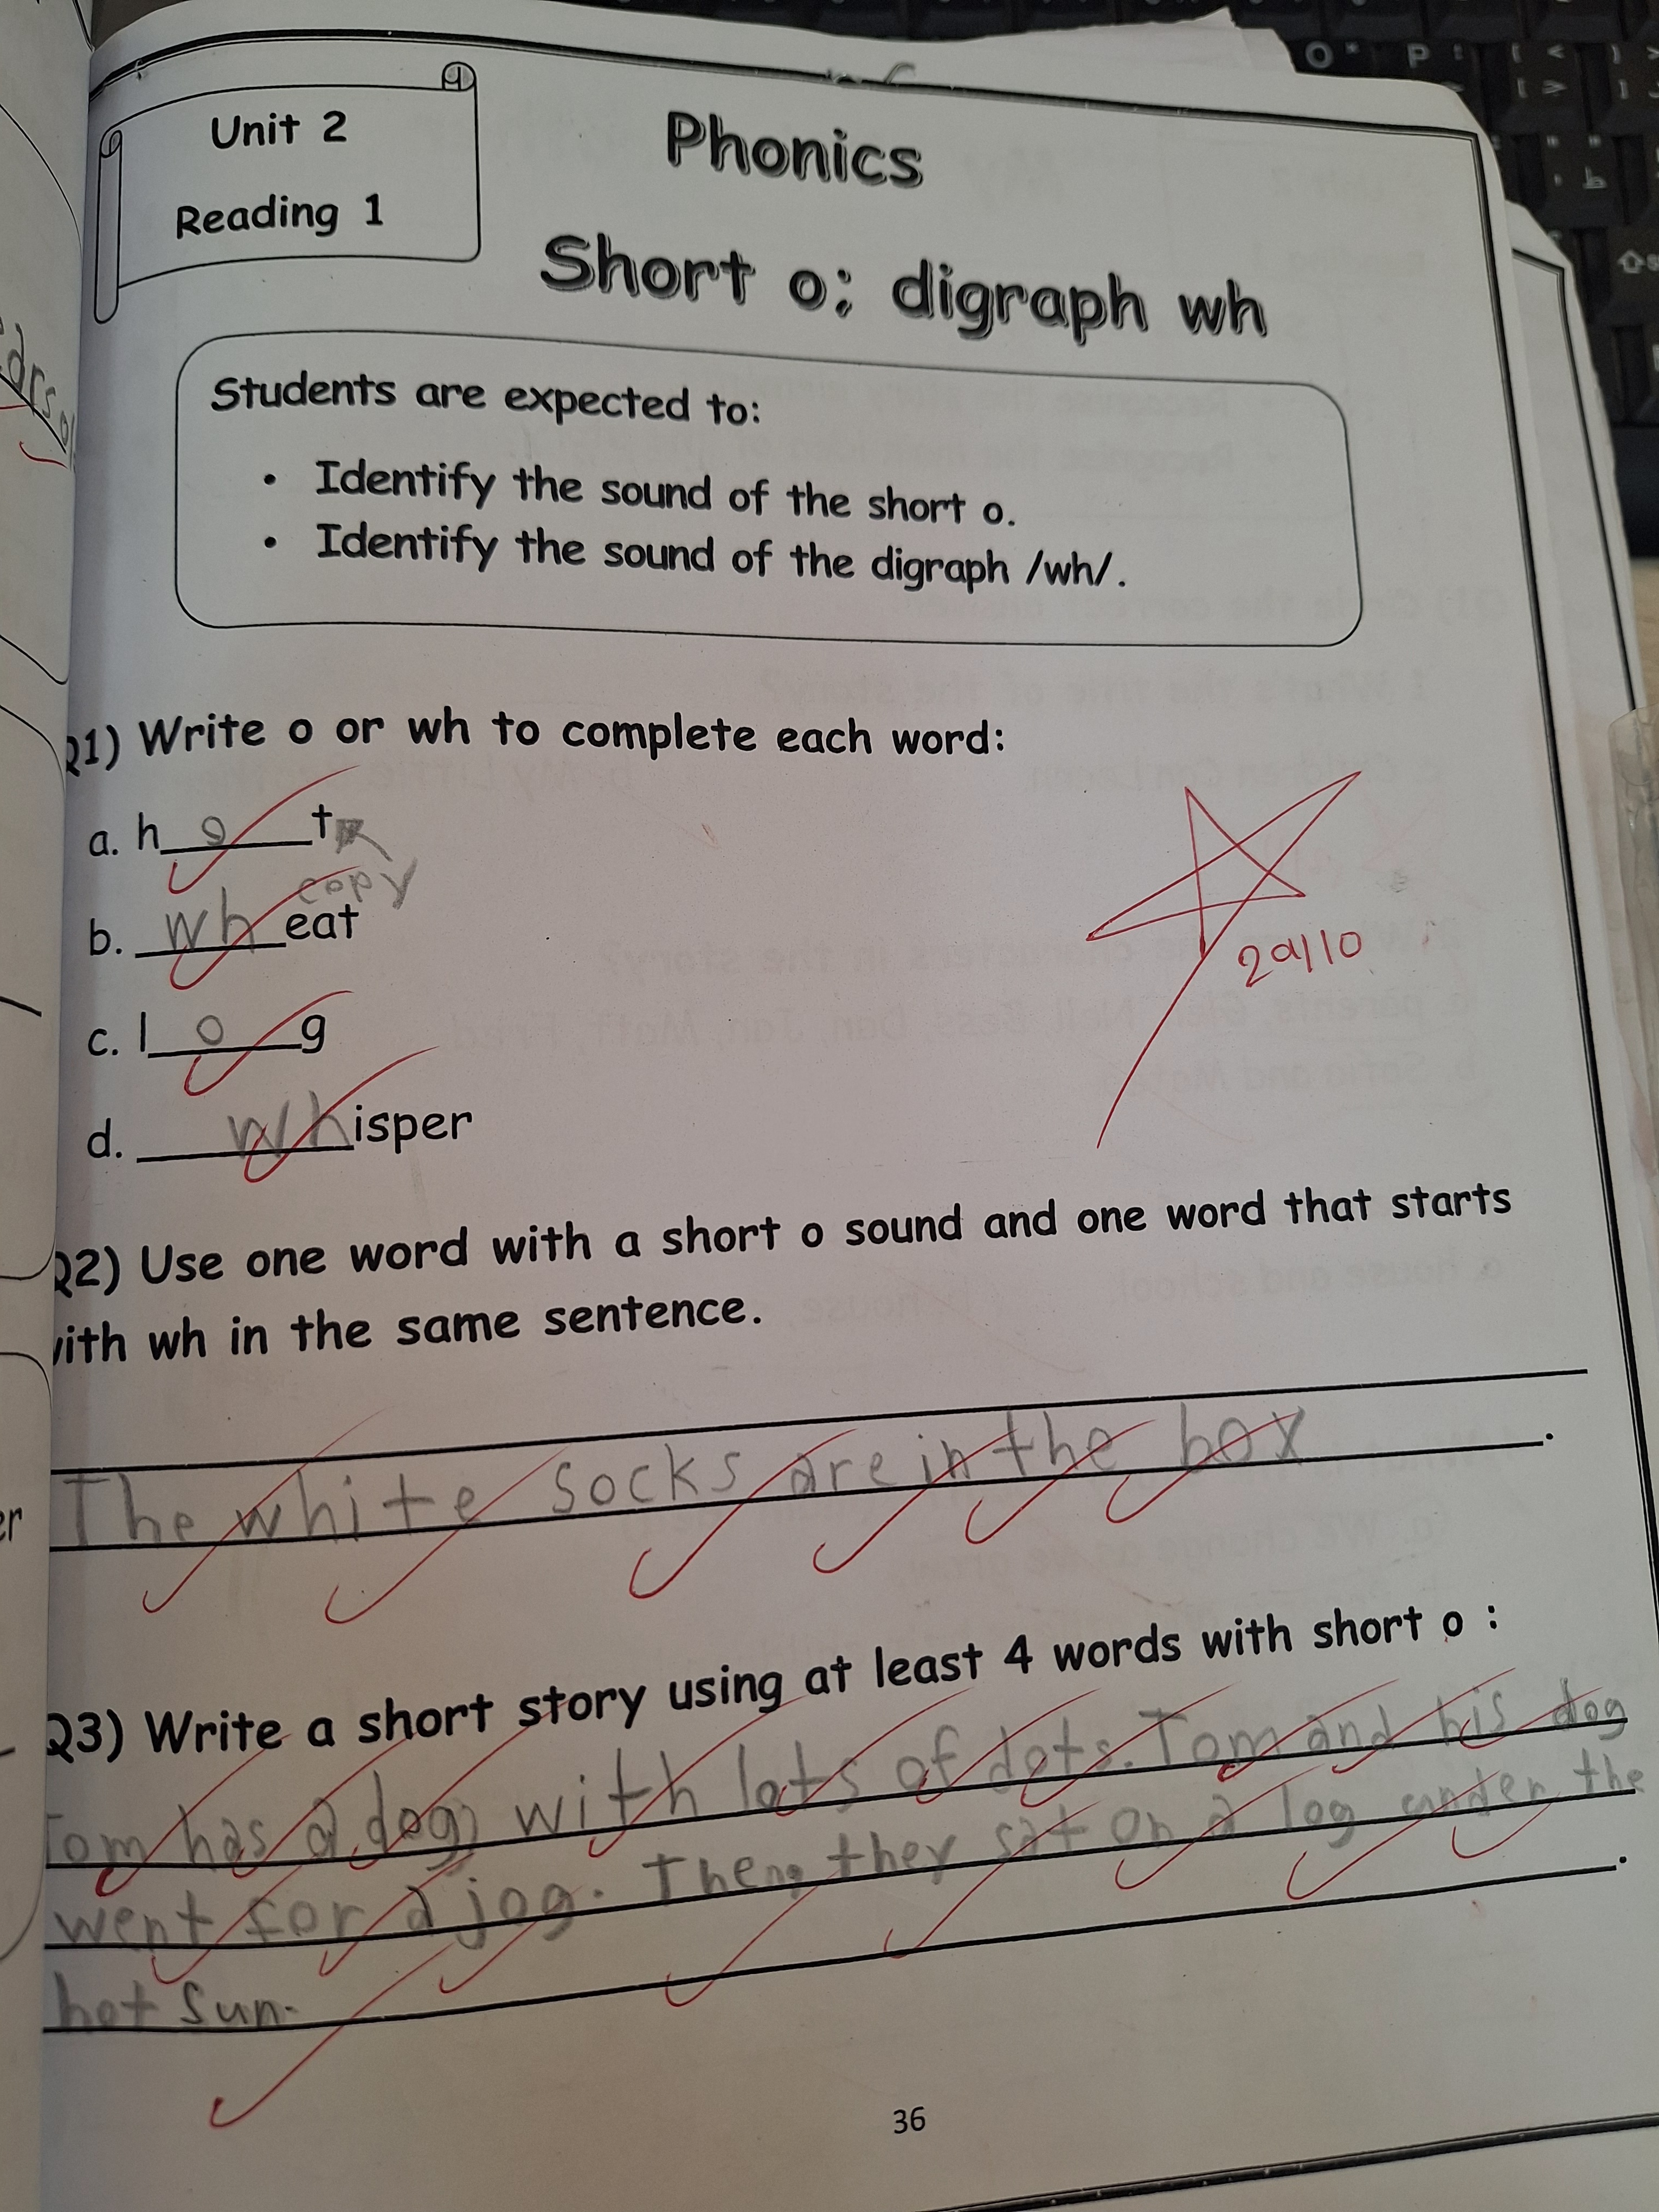 Unit 2
Reading 1
Phonics
Short o; digraph wh
Students are expected to:
• Identify the sound of the short o.
• Identify the sound of the digraph /wh/.
Q1) Write o or wh to complete each word:
a. h o t
copy
b. wh eat
c. l o g
d. wh isper
29/10
Q2) Use one word with a short o sound and one word that starts
with wh in the same sentence.
The white socks are in the box.
Q3) Write a short story using at least 4 words with short o :
Tom has a dog with lots of dots. Tom and his dog
went for a jog. Then, they sat on a log under the
hot sun.
36